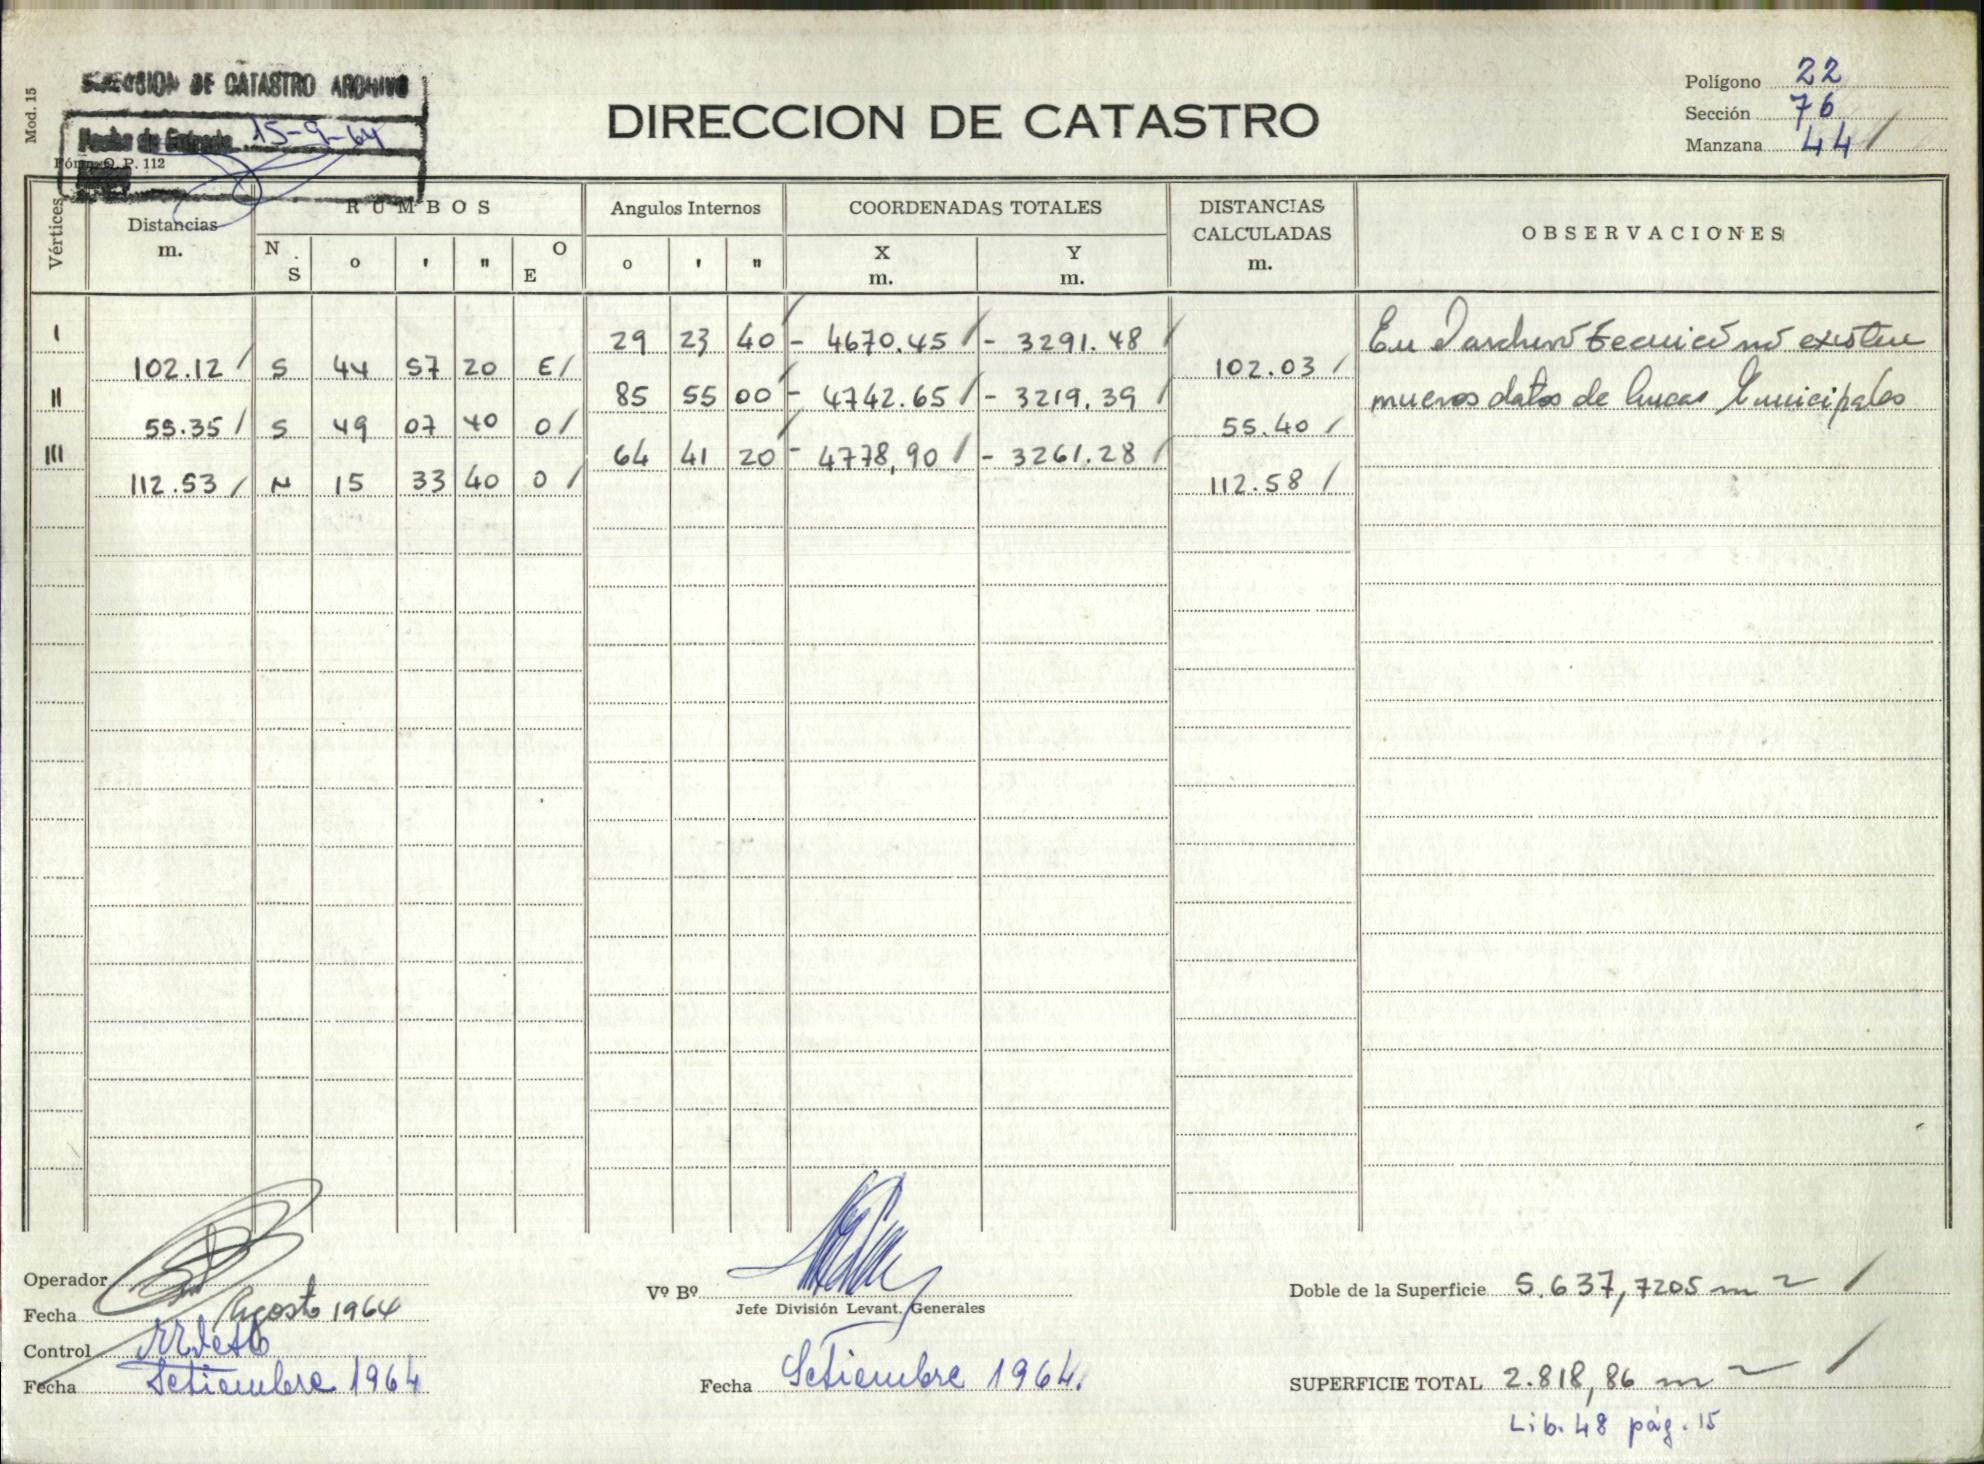 Mod. 15
DE CATASTRO ARCHIVO
Fecha de Entrada 15-9-64
O. P. 112
DIRECCION DE CATASTRO
Polígono 22
Sección 76
Manzana 44 /
Vértices
Distancias m.
R U M B O S
N. S ° ' " O E
Angulos Internos
° ' "
COORDENADAS TOTALES
X m. Y m.
DISTANCIAS CALCULADAS m.
O B S E R V A C I O N E S
I 29 23 40 - 4670.45 / - 3291.48 /
102.12 / S 44 57 20 E / 102.03 /
II 85 55 00 - 4742.65 / - 3219.39 /
55.35 / S 49 07 40 O / 55.40 /
III 64 41 20 - 4778,90 / - 3261.28 /
112.53 / N 15 33 40 O / 112.58 /
En técnico no existen
nuevos datos de lineas Municipales
Operador
Fecha Agosto 1964
Control
Fecha Setiembre 1964
Vº Bº
Jefe División Levant. Generales
Fecha Setiembre 1964.
Doble de la Superficie 5.637,7205 m² /
SUPERFICIE TOTAL 2.818,86 m² /
Lib. 48 pág. 15